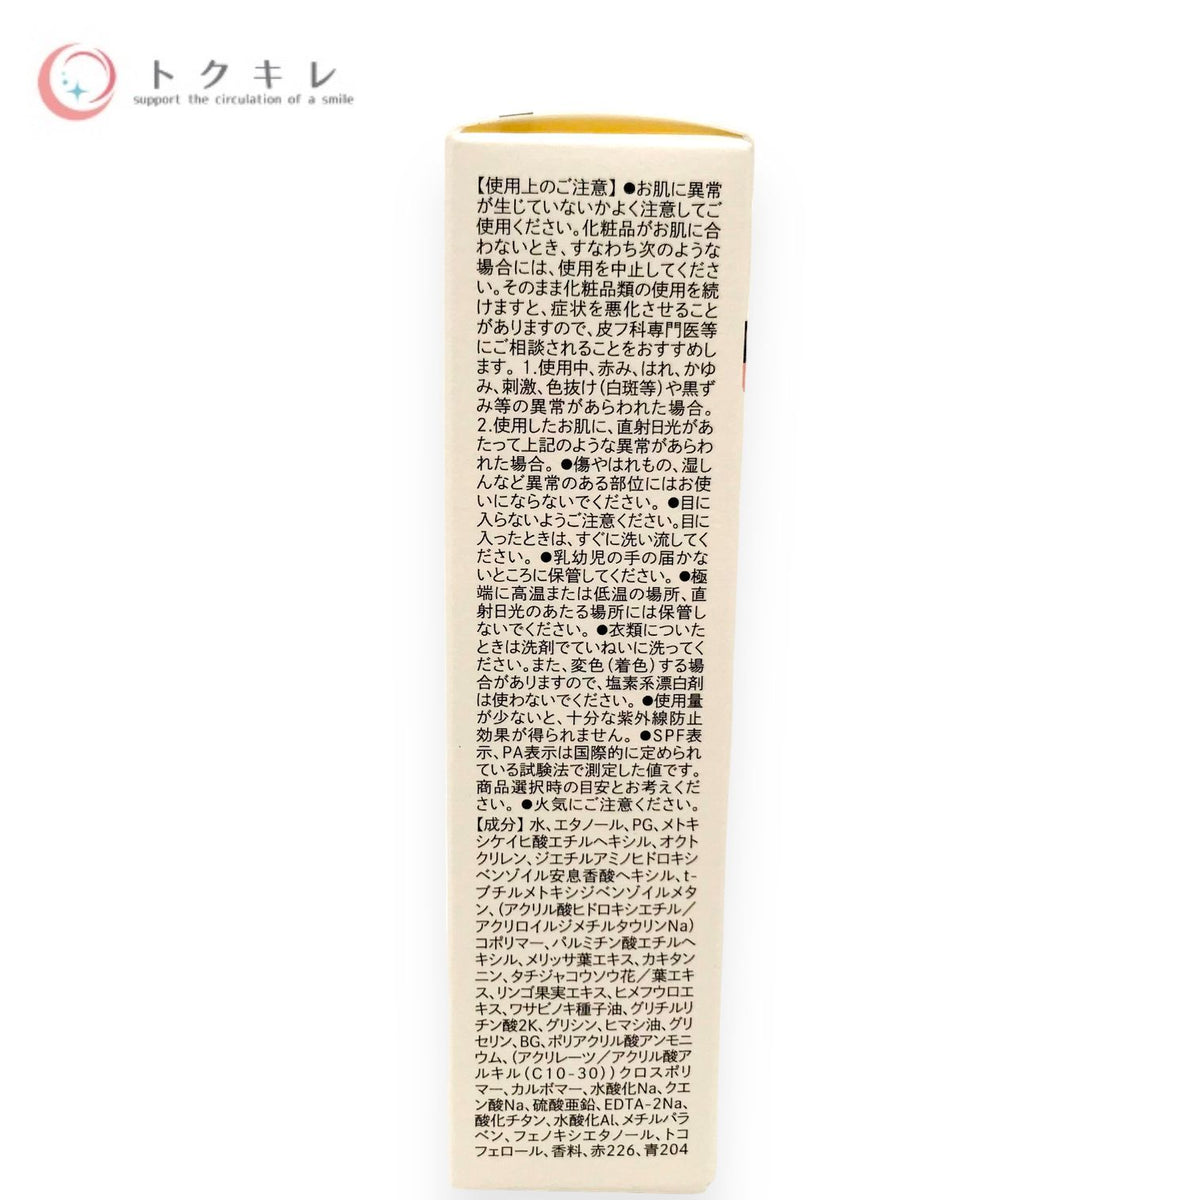 トクキレ
support the circulation of a smile
【使用上のご注意】●お肌に異常
が生じていないかよく注意してご
使用ください。化粧品がお肌に合
わないとき、すなわち次のような
場合には、使用を中止してくださ
い。そのまま化粧品類の使用を続
けますと、症状を悪化させること
がありますので、皮フ科専門医等
にご相談されることをおすすめし
ます。1.使用中、赤み、はれ、かゆ
み、刺激、色抜け(白斑等)や黒ず
み等の異常があらわれた場合。
2.使用したお肌に、直射日光があ
たって上記のような異常があらわ
れた場合。●傷やはれもの、湿し
んなど異常のある部位にはお使
いにならないでください。●目に
入らないようご注意ください。目に
入ったときは、すぐに洗い流してく
ださい。●乳幼児の手の届かな
いところに保管してください。●極
端に高温または低温の場所、直
射日光のあたる場所には保管し
ないでください。●衣類についた
ときは洗剤でていねいに洗ってく
ださい。また、変色(着色)する場
合がありますので、塩素系漂白剤
は使わないでください。●使用量
が少ないと、十分な紫外線防止
効果が得られません。●SPF表
示、PA表示は国際的に定められ
ている試験法で測定した値です。
商品選択時の目安とお考えくだ
さい。●火気にご注意ください。
【成分】水、エタノール、PG、メトキ
シケイヒ酸エチルヘキシル、オクト
クリレン、ジエチルアミノヒドロキシ
ベンゾイル安息香酸ヘキシル、t-
ブチルメトキシジベンゾイルメタ
ン、(アクリル酸ヒドロキシエチル／
アクリロイルジメチルタウリンNa)
コポリマー、パルミチン酸エチルヘ
キシル、メリッサ葉エキス、カキタン
ニン、タチジャコウソウ花／葉エキ
ス、リンゴ果実エキス、ヒメフウロエ
キス、ワサビノキ種子油、グリチルリ
チン酸2K、グリシン、ヒマシ油、グリ
セリン、BG、ポリアクリル酸アンモニ
ウム、(アクリレーツ／アクリル酸ア
ルキル(C10-30))クロスポリ
マー、カルボマー、水酸化Na、クエ
ン酸Na、硫酸亜鉛、EDTA-2Na、
酸化チタン、水酸化Al、メチルパラ
ベン、フェノキシエタノール、トコ
フェロール、香料、赤226、青204